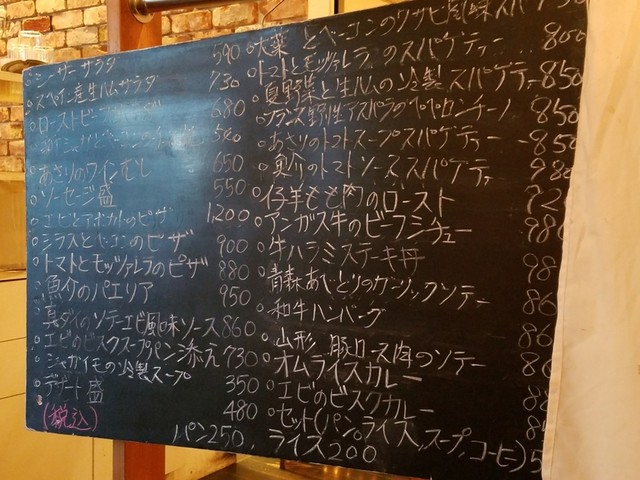 シーザーサラダ 590
スペイン産生ハムサラダ 730
ローストビーフ 680
540
あさりのワインむし 650
ソーセージ盛 550
エビとアボカドのピザ 1200
シラスとベーコンのピザ 900
トマトとモッツァレラのピザ 880
魚介のパエリア 950
真ダイのソテーエビ風味ソース 860
エビのビスクスープパン添え 730
ジャガイモの冷製スープ 350
デザート盛 480
(税込)
パン250, ライス200
大葉とベーコンのワサビ風味スパ
トマトとモッツァレラのスパゲティー 800
夏野菜と生ハムの冷製スパゲティ 850
フランス野性アスパラのペペロンチーノ 850
あさりのトマトスープスパゲティー 850
魚介のトマトソーススパゲティ 980
仔羊もも肉のロースト
アンガス牛のビーフシチュー
牛ハラミステーキ丼
青森あべどりのガーリックソテー
和牛ハンバーグ
山形 豚ロース肉のソテー
オムライスカレー
エビのビスクカレー
セット(パン。ライス,スープ,コーヒ)